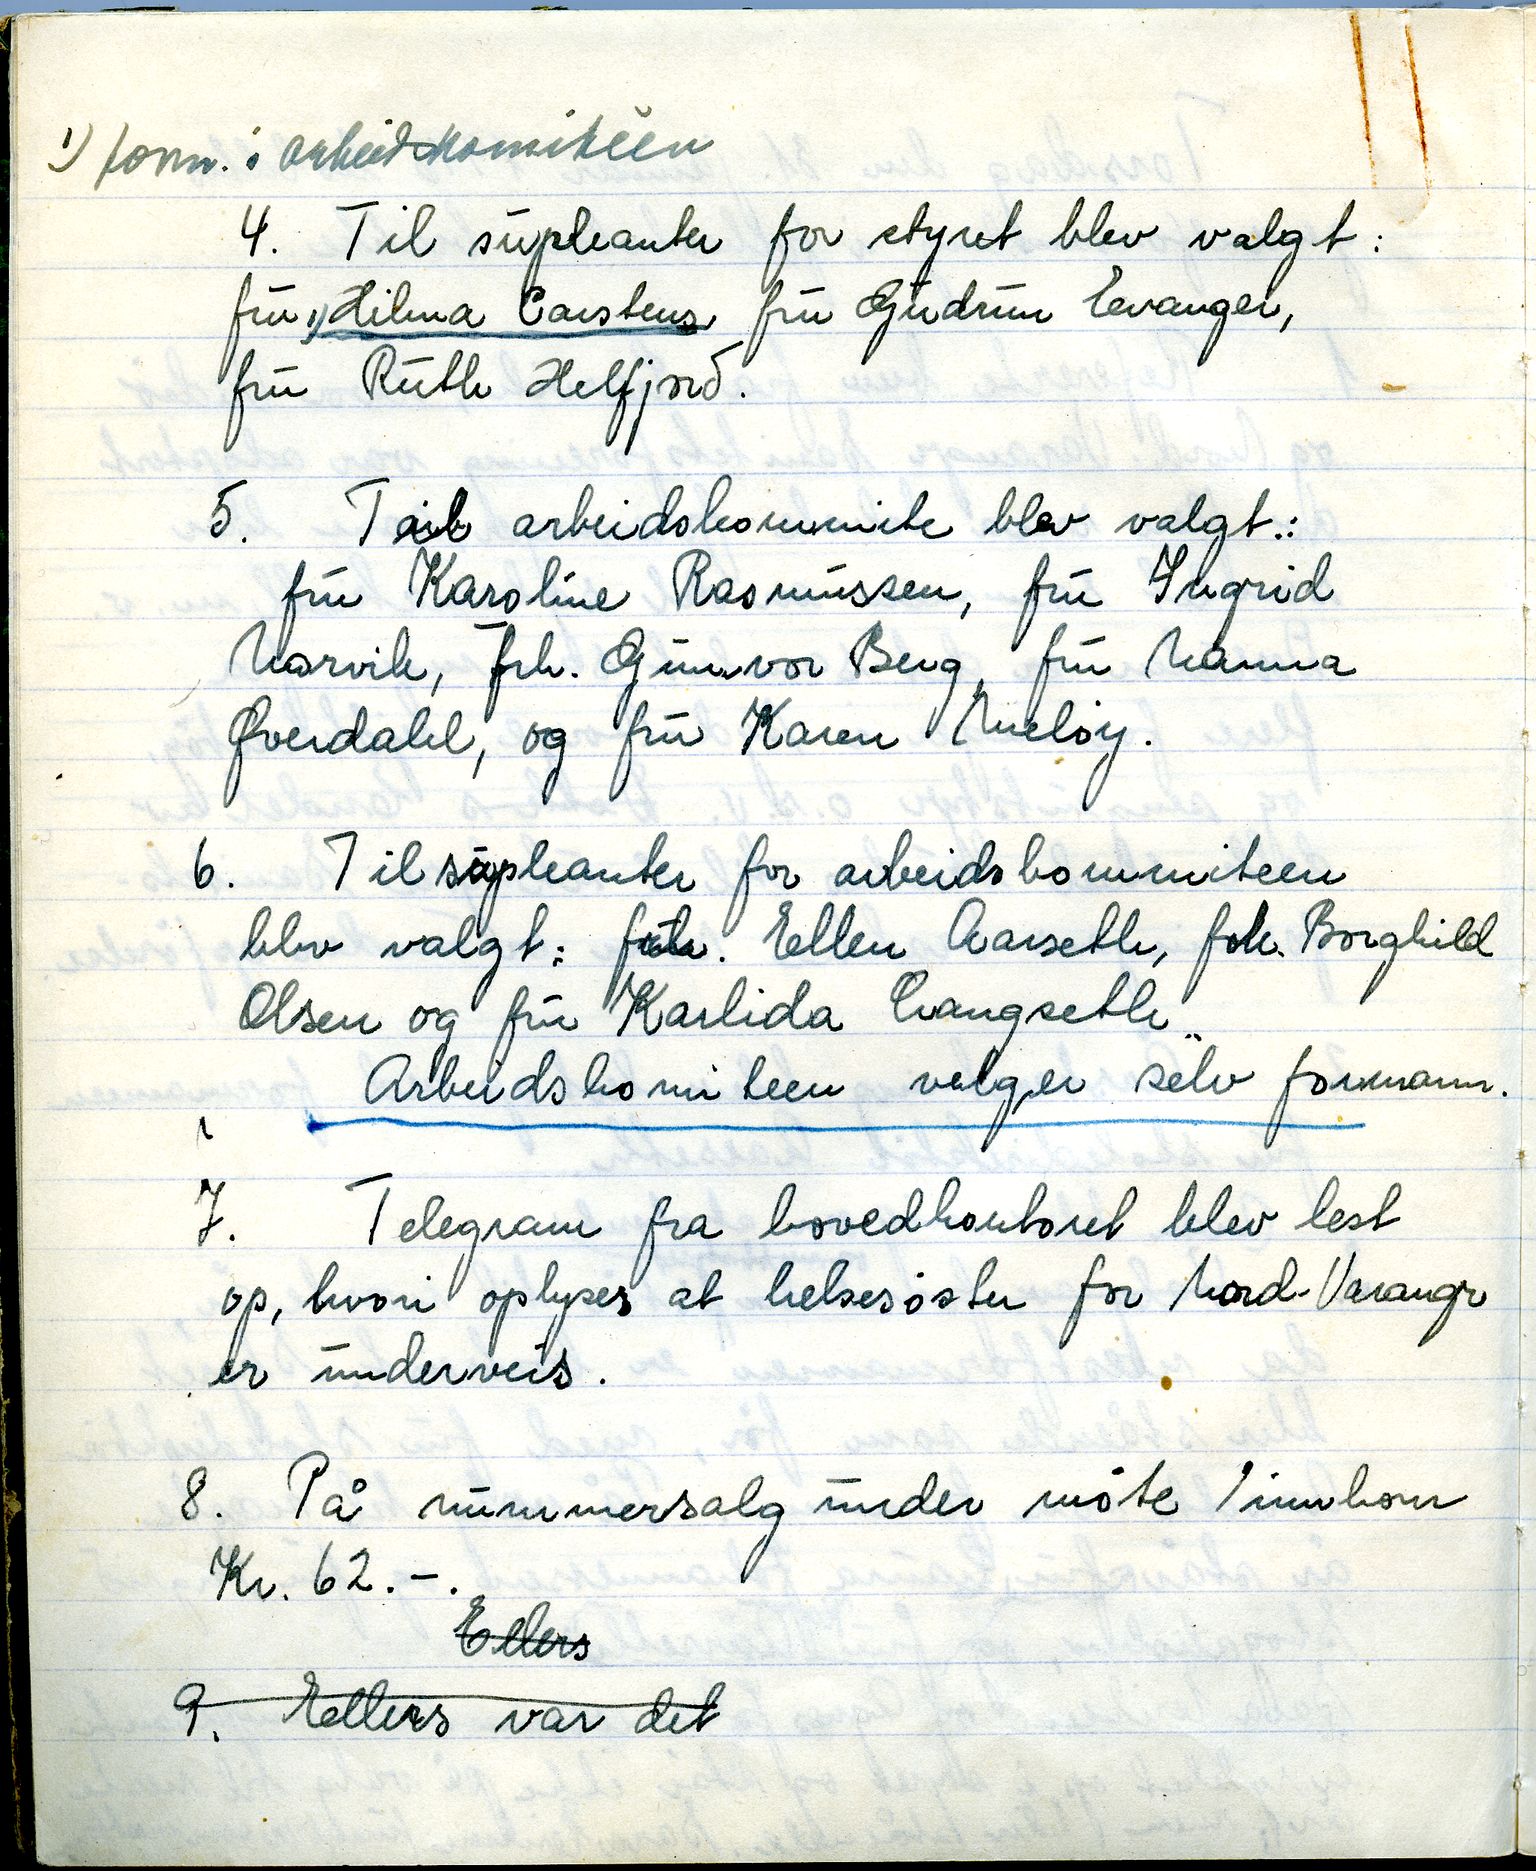 1) form. i arbeidskomiteen
4. Til supleanter for styret blev valgt:
fru 1) Hilma Carstens, fru Gudrun Evanger,
fru Ruth Helfjord.
5. Til arbeidskommite blev valgt:
fru Karoline Rasmussen, fru Ingrid
Narvik, frk. Gunvor Berg, fru Nanna
Øverdahl, og fru Karen Meløy.
6. Til supleanter for arbeidskommiteen
blev valgt: frk. Ellen Aarseth, frk. Borghild
Olsen og fru Karlida Langseth.
Arbeidskomiteen velger selv formann.
7. Telegram fra hovedkontoret blev lest
op, hvori oplyses at helsesøster for Nord-Varanger
er underveis.
8. På nummersalg under møte innkom
Kr. 62.-.
Ellers
9. Ellers var det